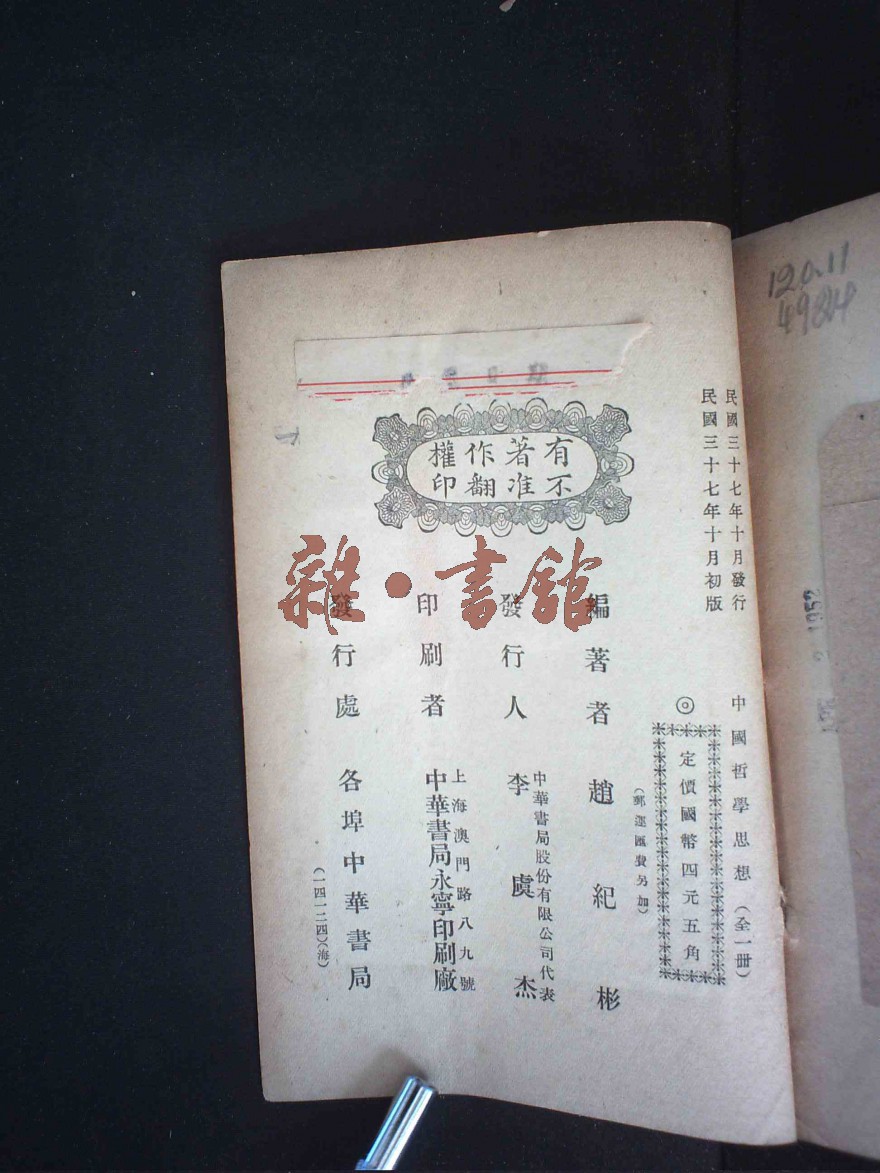 民國三十七年十月發行
民國三十七年十月初版
中國哲學思想（全一冊）
◎定價國幣四元五角
（郵運匯費另加）
有著作權
不准翻印
編著者 趙紀彬
發行人 中華書局股份有限公司代表
李虞杰
印刷者 上海澳門路八九號
中華書局永寧印刷廠
發行處 各埠中華書局
（一四一二四）（海）
雜·書舘
120.11
4984
1952